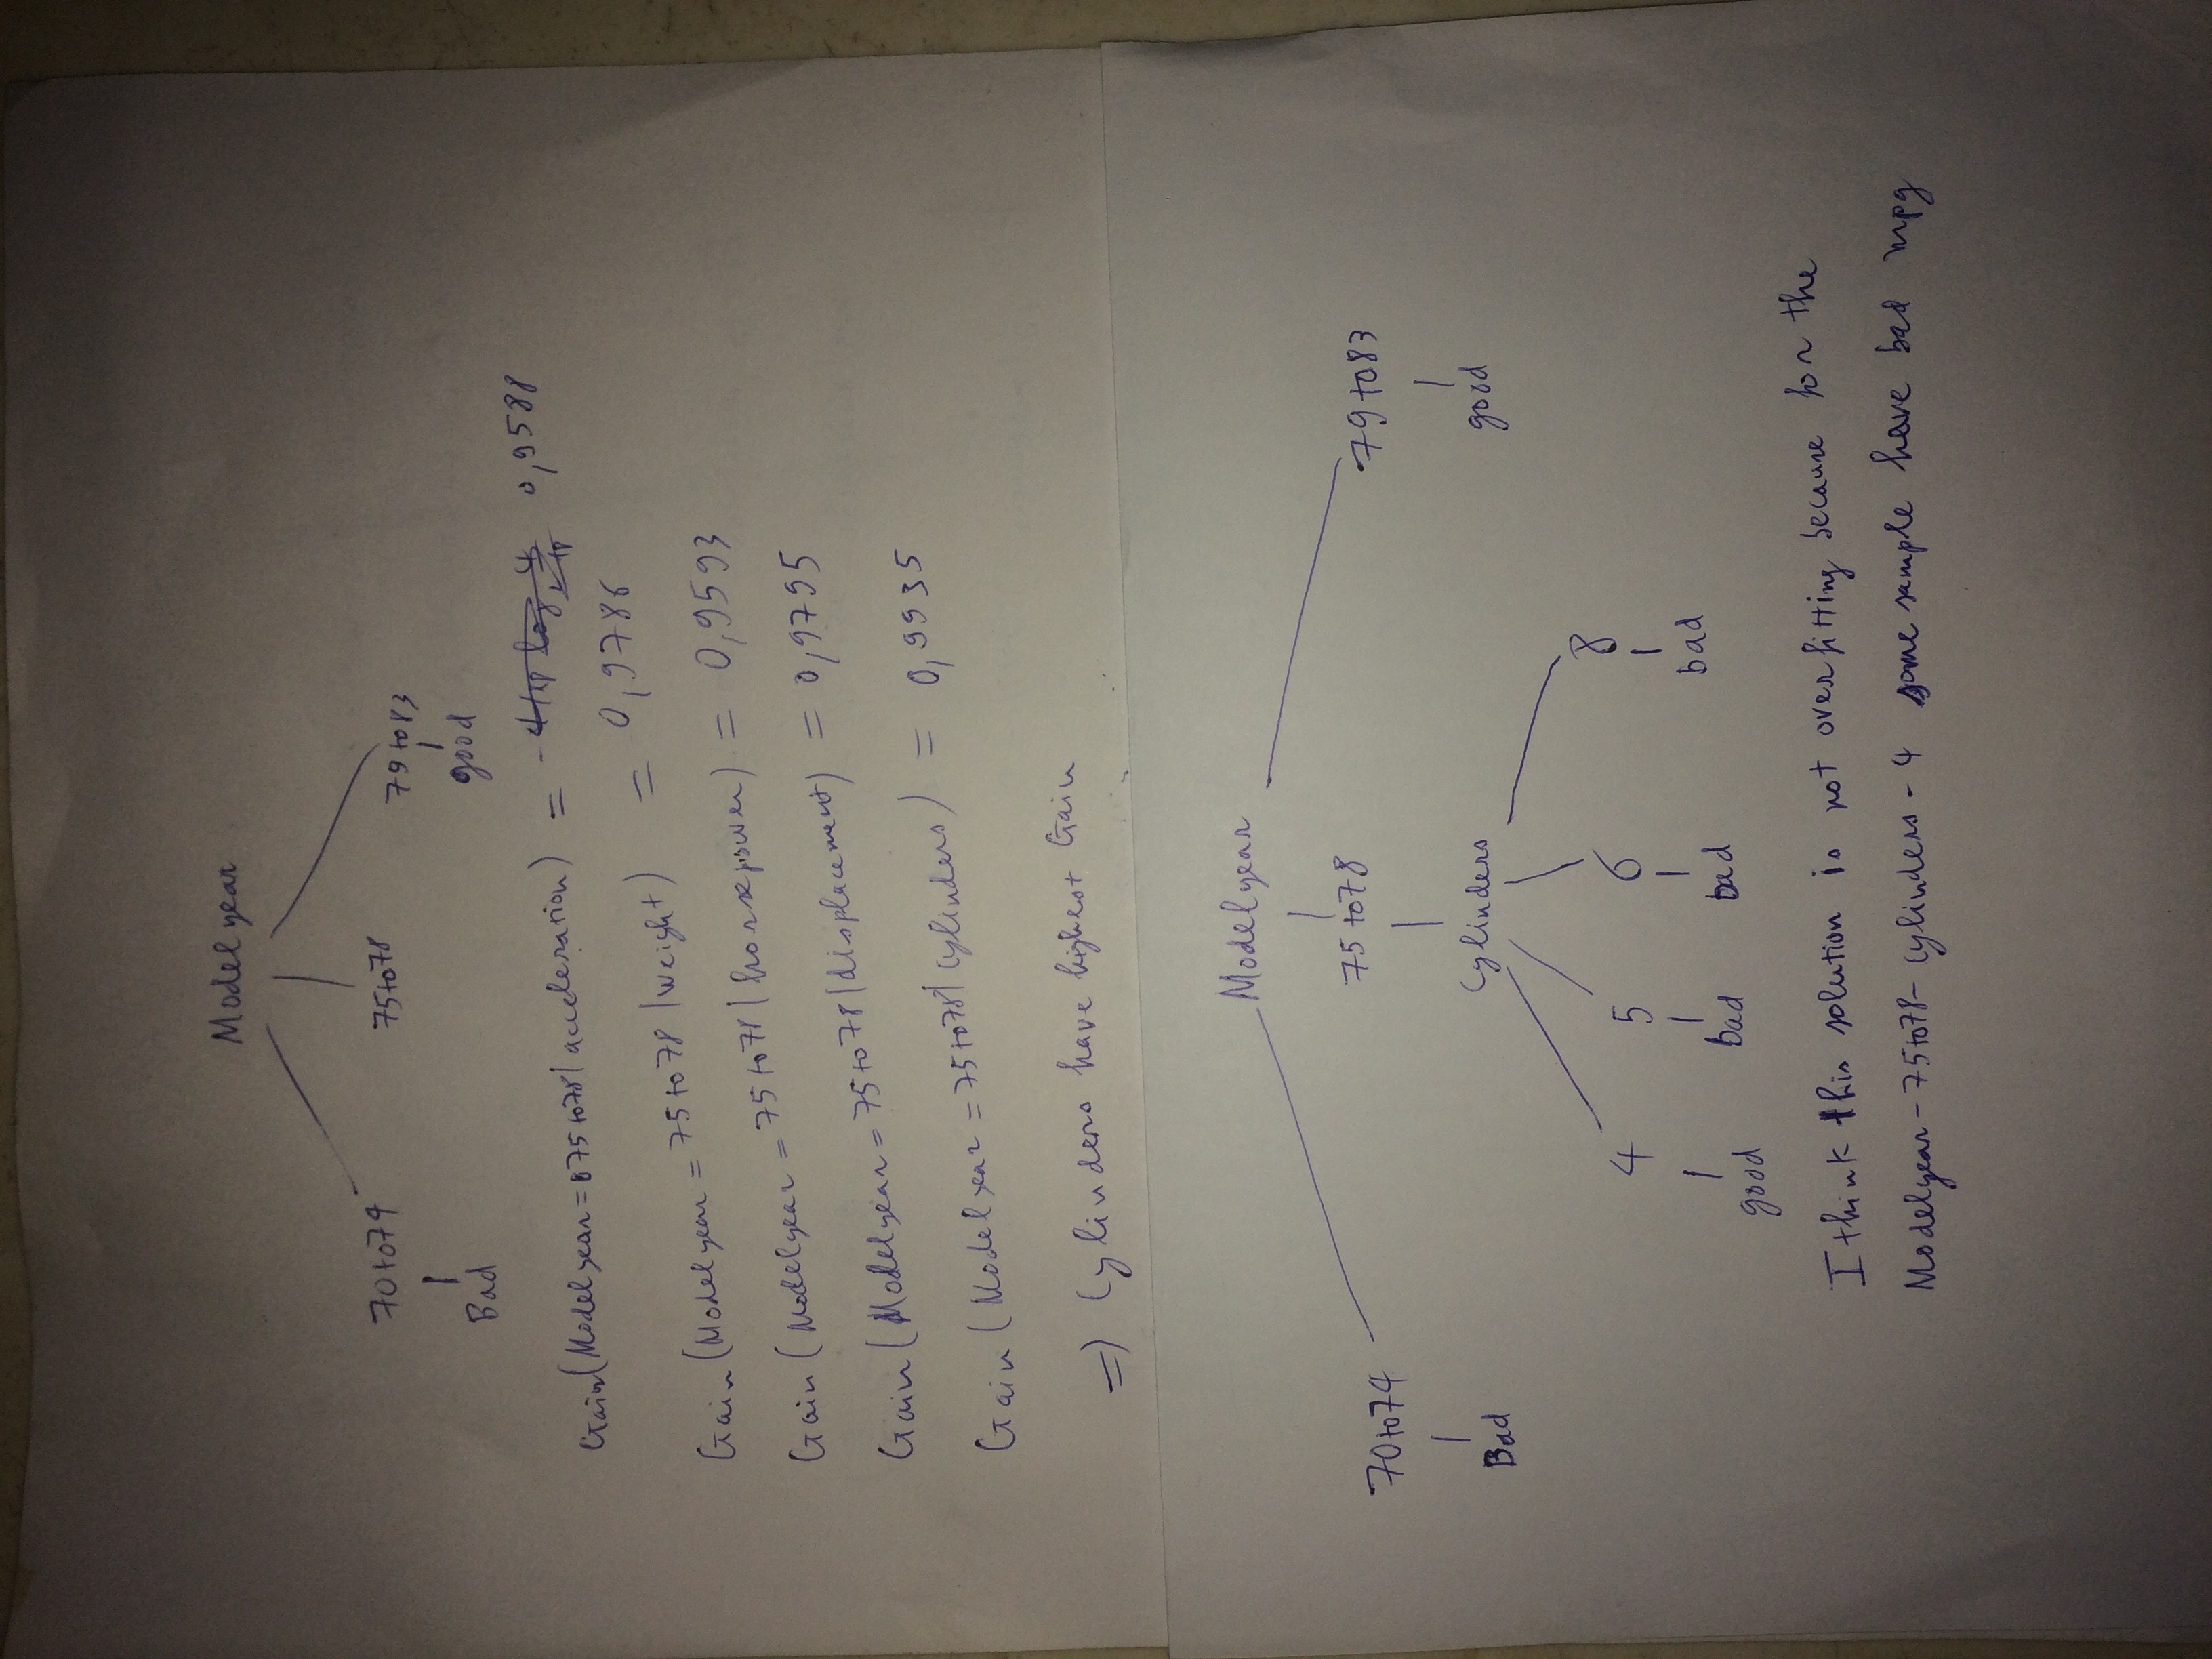 Modelyear
70to74 75to78 79to83
Bad good
Gain(Modelyear=75to78/acceleration) = 0,9588
Gain(Modelyear=75to78/weight) = 0,9786
Gain(Modelyear=75to78/horsepower) = 0,9593
Gain(Modelyear=75to78/displacement) = 0,9795
Gain(Modelyear=75to78/cylinders) = 0,9935
=> Cylinders have highest Gain
Modelyear
70to74 75to78 79to83
Bad Cylinders good
4 5 6 8
good bad bad bad
I think this solution is not overfitting because for the
Modelyear-75to78-cylinders-4 some sample have bad mpg